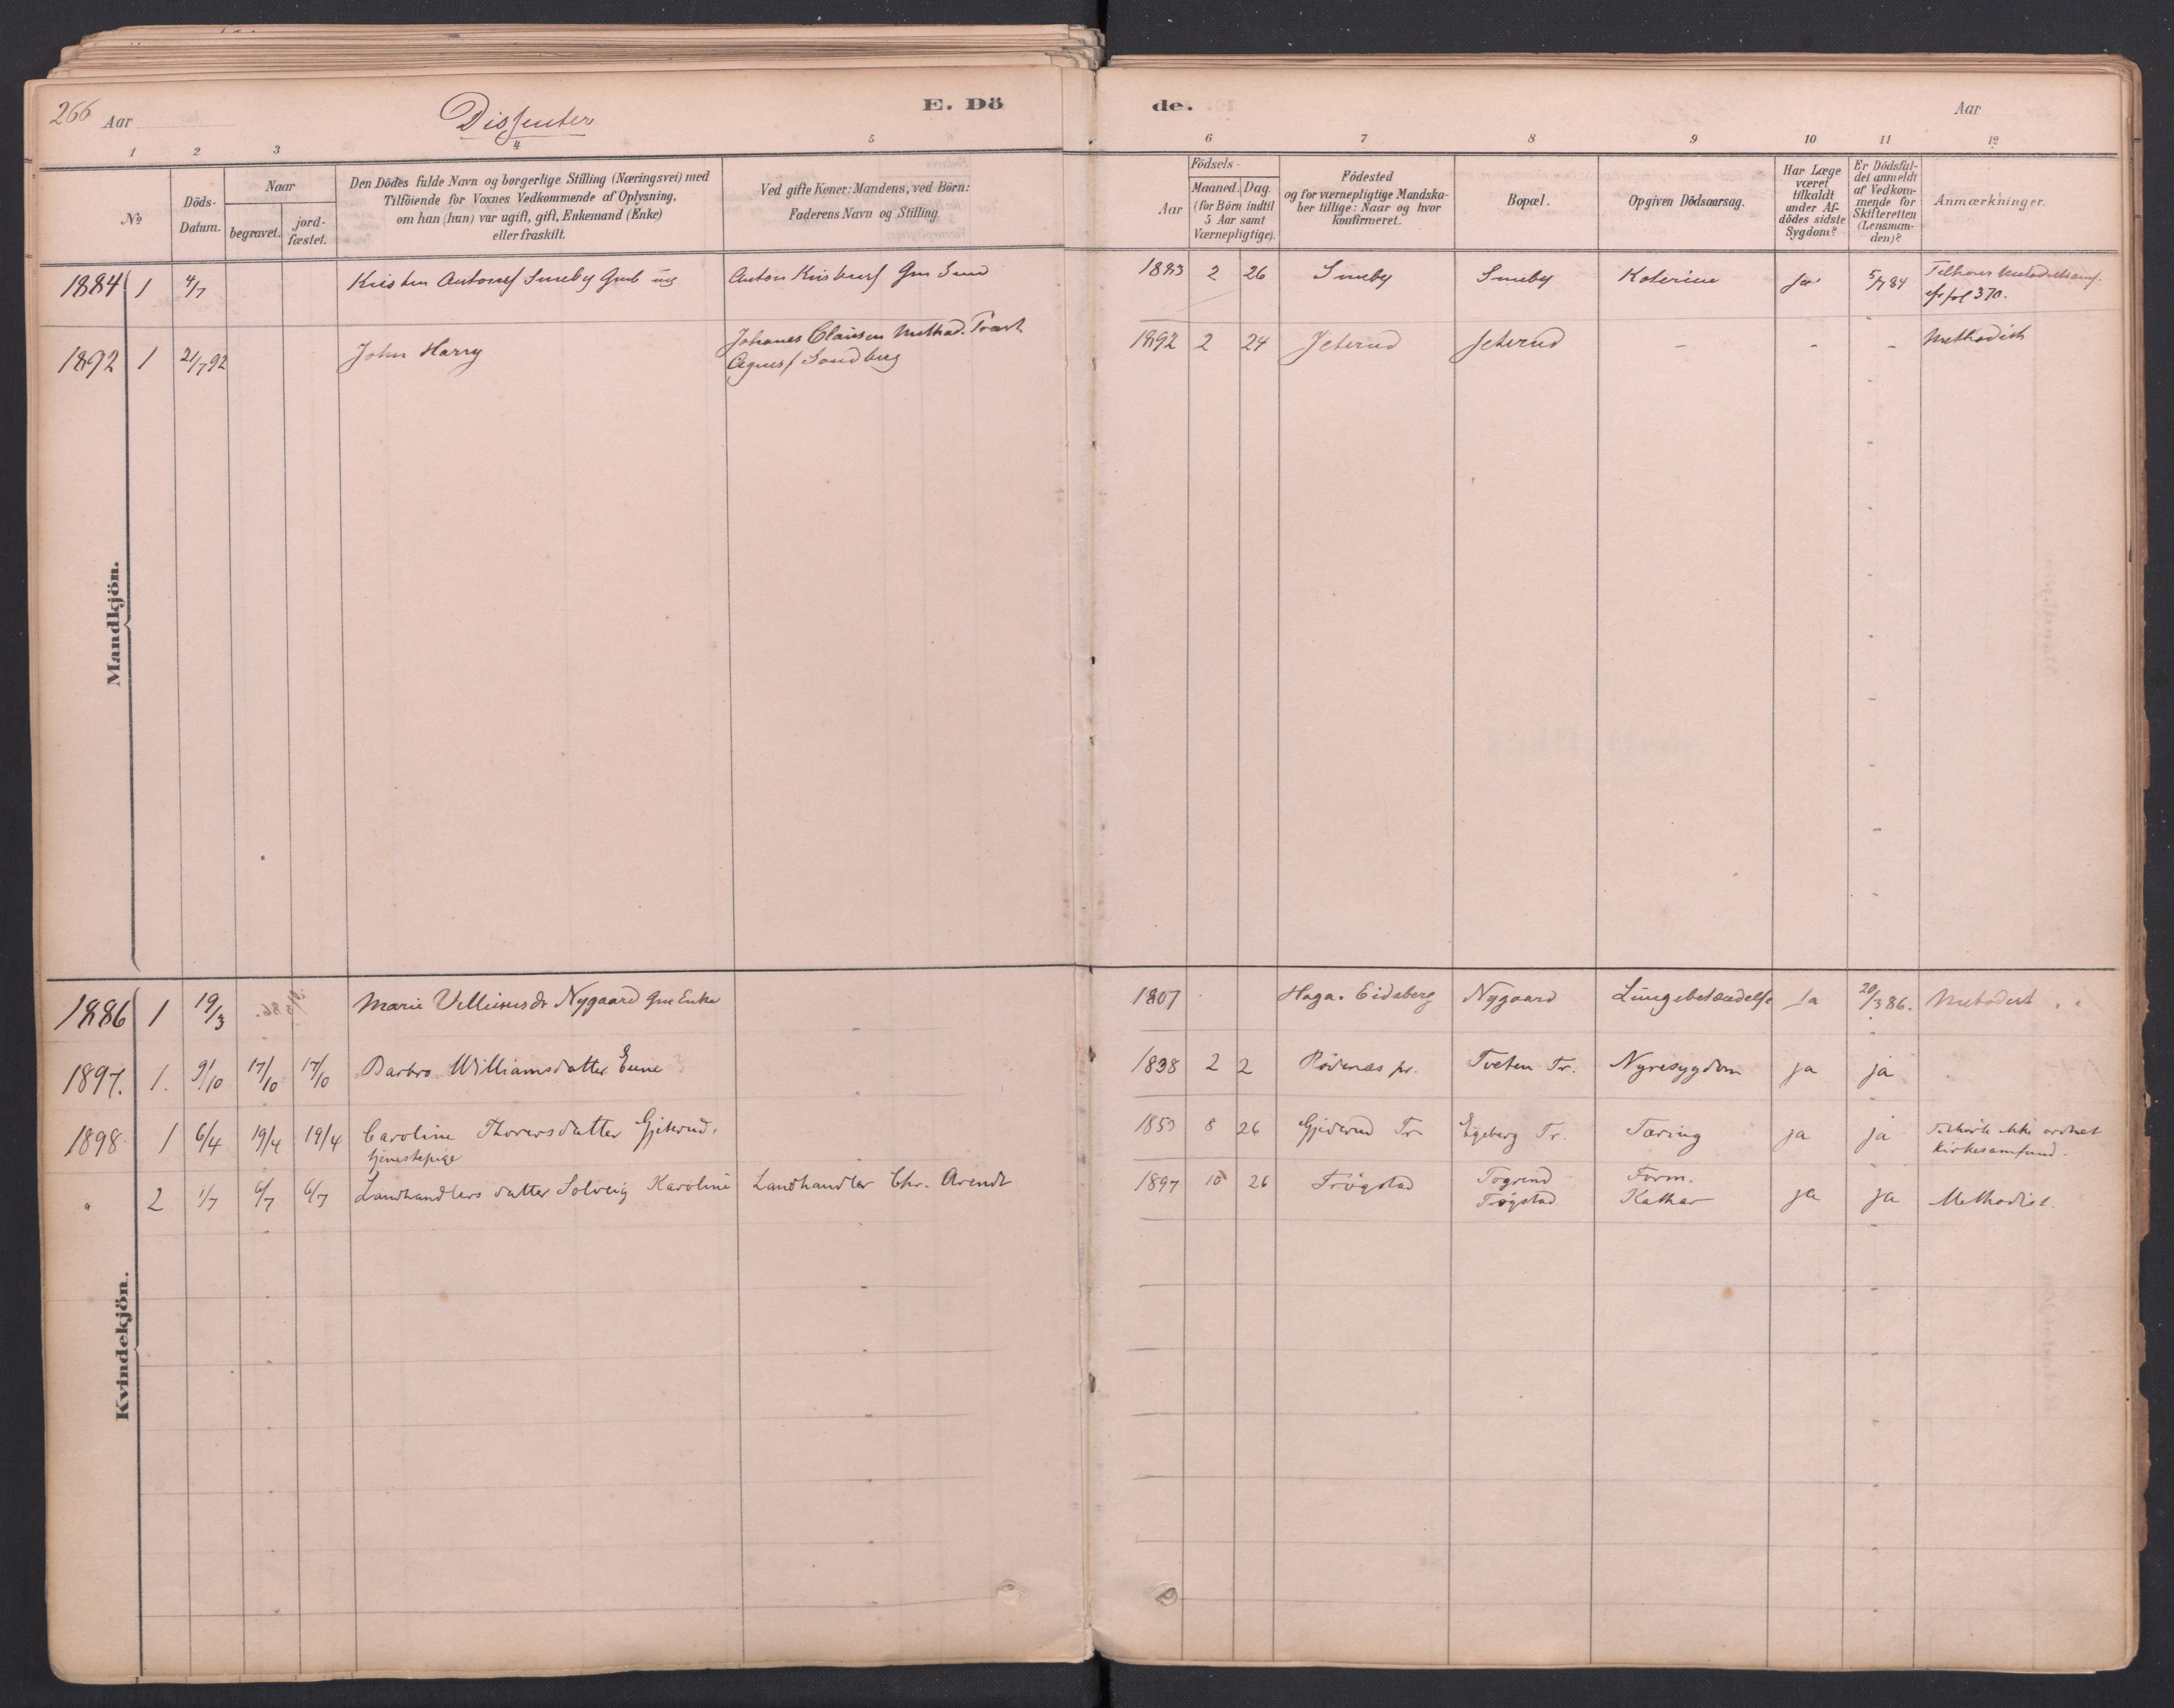 266 Aar
Dissenter
E. Dö
de.
Aar
1 2 3 4 5 6 7 8 9 10 11 12
No
Döds-
Datum.
Naar
begravet.
jord-
fæstet.
Den Dödes fulde Navn og borgerlige Stilling (Næringsvei) med
Tilföiende for Voxnes Vedkommende af Oplysning,
om han (hun) var ugift, gift, Enkemand (Enke)
eller fraskilt.
Ved gifte Koner: Mandens, ved Börn:
Faderens Navn og Stilling.
Födsels-
Aar
Maaned. Dag.
(for Börn indtil
5 Aar samt
Værnepligtige).
Födested
og for værnepligtige Mandska-
ber tillige: Naar og hvor
konfirmeret.
Bopæl.
Opgiven Dödsaarsag.
Har Læge
været
tilkaldt
under Af-
dödes sidste
Sygdom?
Er Dödsfal-
det anmeldt
af Vedkom-
mende for
Skifteretten
(Lensman-
den)?
Anmærkninger.
Mandkjön.
1884 1 4/7 Smeby 1883 2 26 Smeby Smeby Ja 5/7 84
fol 370.
1892 1 21/7 92 John Harry Johanes Clausen Method.
Sandberg 1892 2 24 Jeterud Jeterud - - - Methodist
Kvindekjön.
1886 1 19/3 Marie Nygaard Gm Enke 1807 Haga. Eidsberg Nygaard Lungebetændelse Ja 20/3 86. Metodist
1897. 1. 9/10 17/10 17/10 Barbro Williamsdatter 1838 2 2 Rödenæs pr. Tveten Tr. Nyresygdom ja ja
1898 1 6/4 19/4 19/4 Caroline Thorersdatter Gjiterud.
tjenestepige 1853 8 26 Gjiterud Tr. Egeberg Tr. Tæring ja ja ikke ordnet
kirkesamfund.
" 2 1/7 6/7 6/7 Landhandlers datter Solveig Karoline Landhandler Chr. Arendt 1897 10 26 Trögstad
Trögstad Form.
Kathar ja ja Methodist.